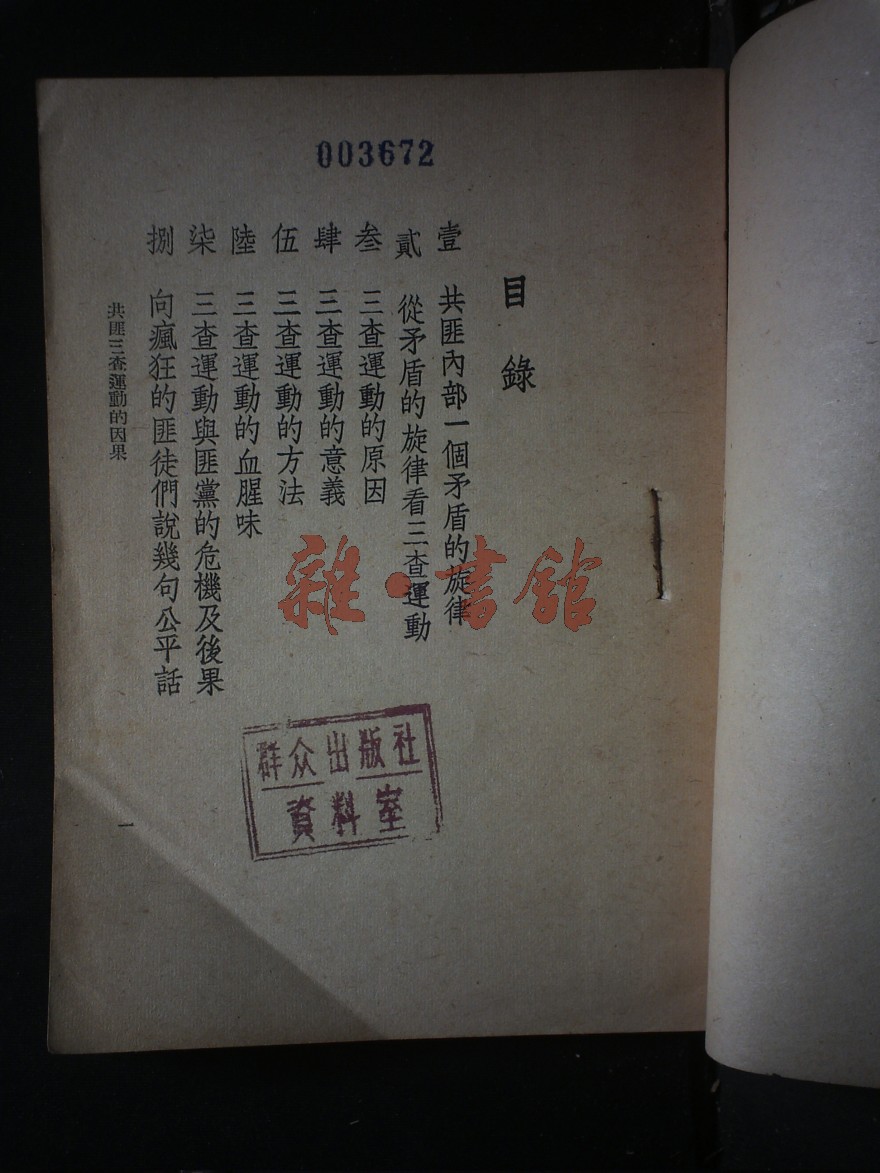 003672
目錄
壹 共匪內部一個矛盾的旋律
貳 從矛盾的旋律看三查運動
叁 三查運動的原因
肆 三查運動的意義
伍 三查運動的方法
陸 三查運動的血腥味
柒 三查運動與匪黨的危機及後果
捌 向瘋狂的匪徒們說幾句公平話
共匪三查運動的因果
一
雜·書館
群众出版社
資料室